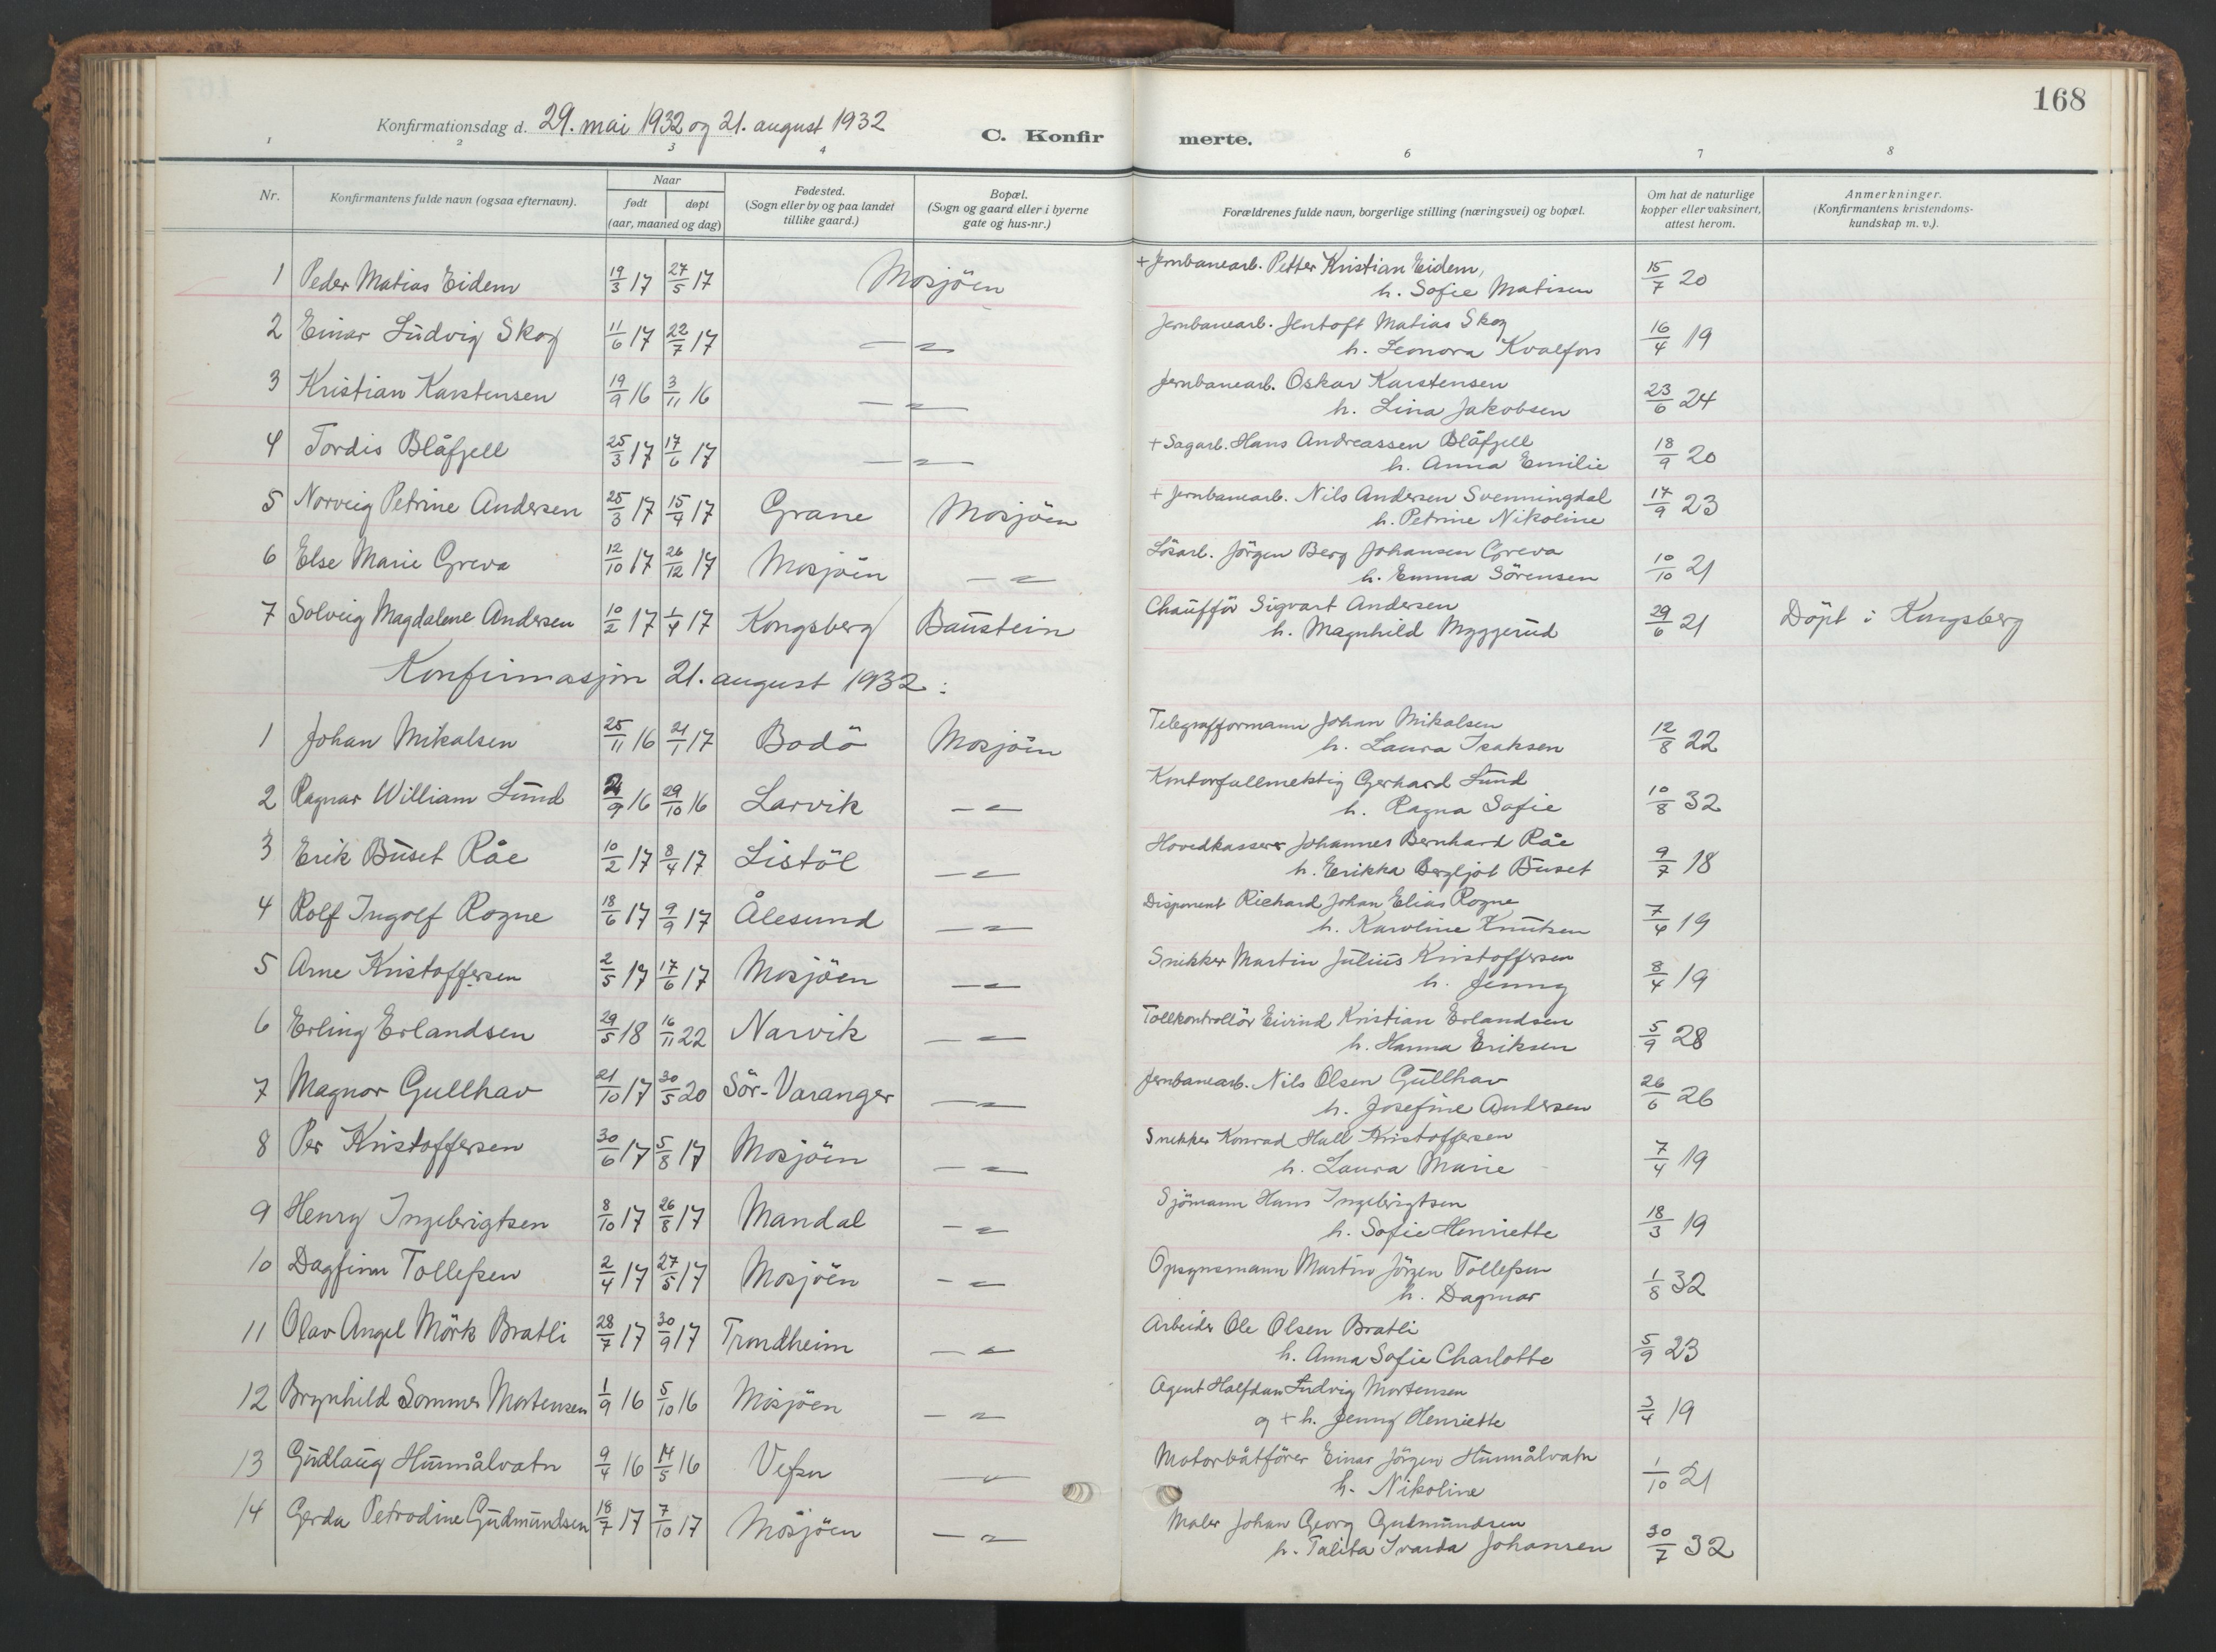 168
Konfirmationsdag d. 29. mai 1932 og 21. august 1932
C. Konfirmerte.
1 2 3 4 6 7 8
Nr. Konfirmantens fulde navn (ogsaa efternavn). Naar født døpt (aar, maaned og dag) Fødested. (Sogn eller by og paa landet tillike gaard.) Bopæl. (Sogn og gaard eller i byerne gate og hus-nr.) Forældrenes fulde navn, borgerlige stilling (næringsvei) og bopæl. Om hat de naturlige kopper eller vaksinert, attest herom. Anmerkninger. (Konfirmantens kristendomskundskap m. v.).
1 Peder Matias Eidem 19/3 17 27/5 17 Mosjöen + Jernbanearb. Petter Kristian Eidem, 15/7 20
h. Sofie Matisen
2 Einar Ludvig Skog 11/6 17 22/7 17 — " — Jernbanearb. Jentoft Matias Skog 16/4 19
h. Leonora Kvalfors
3 Kristian Karstensen 19/9 16 3/11 16 — " — Jernbanearb. Oskar Karstensen 23/6 24
h. Lina Jakobsen
4 Tordis Blåfjell 25/3 17 17/6 17 — " — + Sagarb. Hans Andreassen Blåfjell 18/9 20
h. Anna Emilie
5 Norveig Petrine Andersen 25/3 17 15/4 17 Grane Mosjöen + Jernbanearb. Nils Andersen Svenningdal 17/9 23
h. Petrine Nikoline
6 Else Marie Greva 12/10 17 26/12 17 Mosjöen — " — Lösarb. Jörgen Berg Johansen Greva 10/10 21
h. Emma Sörensen
7 Solveig Magdalene Andersen 10/2 17 1/4 17 Kongsberg Baustein Chaufför Sigvart Andersen 29/6 21 Döpt i Kongsberg
h. Magnhild Myggerud
Konfirmasjon 21. august 1932:
1 Johan Mikalsen 25/11 16 21/1 17 Bodö Mosjöen Telegrafformann Johan Mikalsen 12/8 22
h. Laura Isaksen
2 Ragnar William Lund 21/9 16 29/10 16 Larvik — " — Kontorfullmektig Gerhard Lund 10/8 32
h. Ragna Sofie
3 Erik Buset Råe 10/2 17 8/4 17 Listöl — " — Hovedkasserer Johannes Bernhard Råe 9/7 18
h. Erikka Bergljot Buset
4 Rolf Ingolf Rogne 18/6 17 9/9 17 Ålesund — " — Disponent Richard Johan Elias Rogne 7/4 19
h. Karoline Knutsen
5 Arne Kristoffersen 2/5 17 17/6 17 Mosjöen — " — Snikker Martin Julius Kristoffersen 8/4 19
h. Jenny
6 Erling Erlandsen 29/5 18 16/11 22 Narvik — " — Tollkontrollör Eivind Kristian Erlandsen 5/9 28
h. Hanna Eriksen
7 Magnor Gullhav 21/10 17 30/5 20 Sör-Varanger — " — Jernbanearb. Nils Olsen Gullhav 26/6 26
h. Josefine Andersen
8 Per Kristoffersen 30/6 17 5/8 17 Mosjöen — " — Snikker Konrad Hall Kristoffersen 7/4 19
h. Laura Marie
9 Henry Ingebrigtsen 8/10 17 26/8 17 Mandal — " — Sjömann Hans Ingebrigtsen 18/3 19
h. Sofie Henriette
10 Dagfinn Tollefsen 2/4 17 27/5 17 Mosjöen — " — Opsynsmann Martin Jörgen Tollefsen 1/8 32
h. Dagmar
11 Olav Angel Mörk Bratli 28/7 17 30/9 17 Trondheim — " — Arbeider Ole Olsen Bratli 5/9 23
h. Anna Sofie Charlotte
12 Brynhild Sommer Mortensen 1/9 16 5/10 16 Mosjöen — " — Agent Halfdan Ludvig Mortensen 3/4 19
og + h. Jenny Henriette
13 Gudlaug Hunnålvatn 9/4 16 14/5 16 Vefsn — " — Motorbåtförer Einar Jörgen Hunnålvatn 1/10 21
h. Nikoline
14 Gerda Petrodine Gudmundsen 18/7 17 7/10 17 Mosjöen — " — Maler Johan Georg Gudmundsen 30/7 32
h. Talita Ivarda Johansen